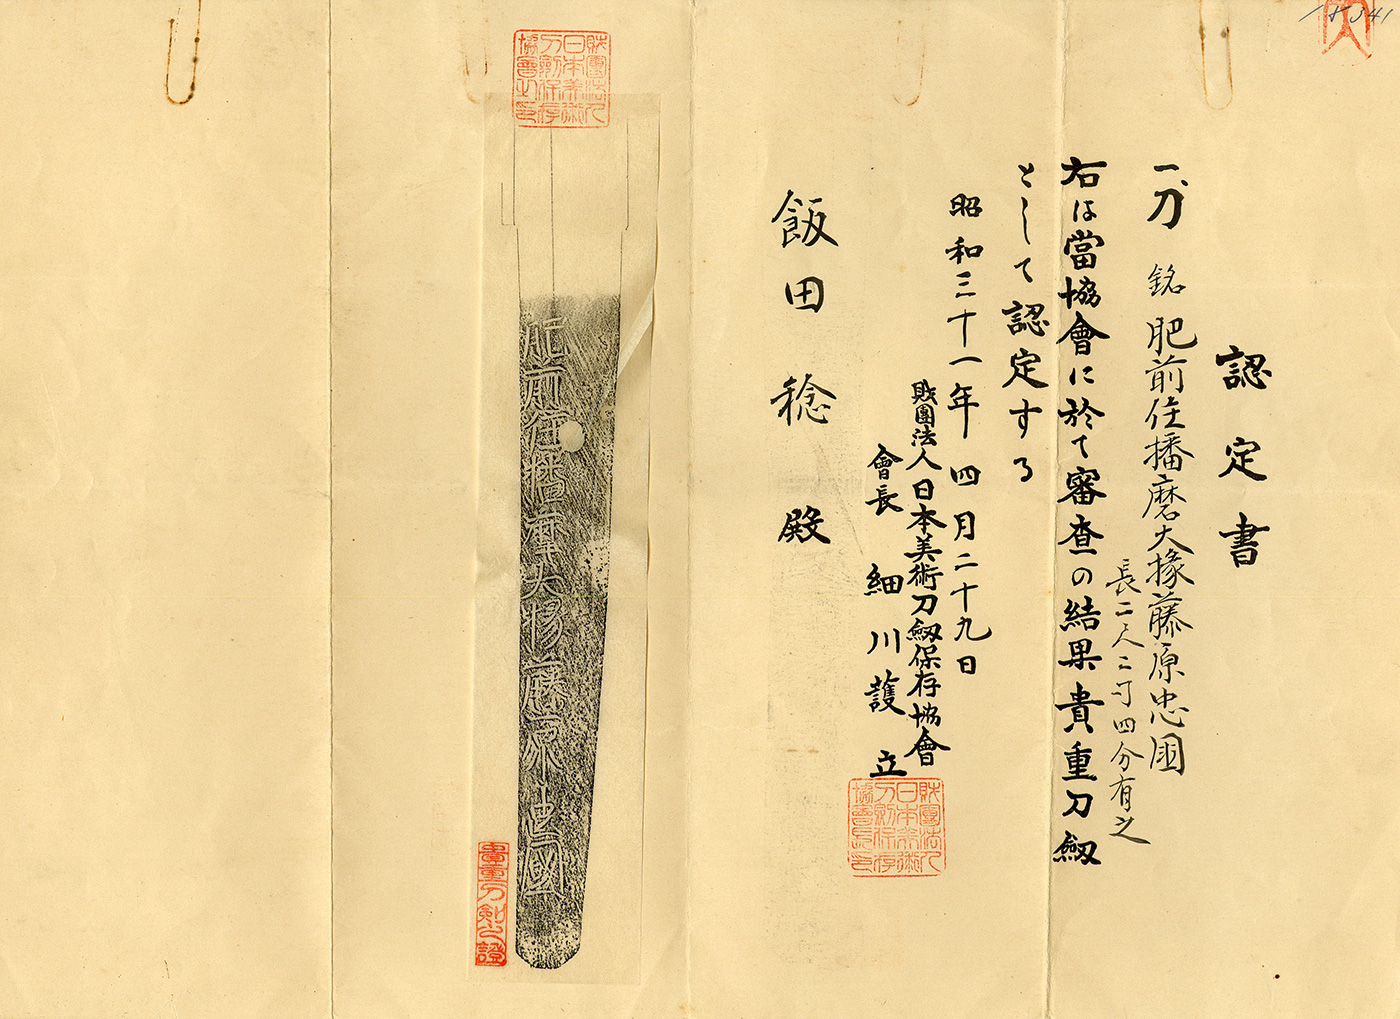 認定書
一、刀 銘 肥前住播磨大掾藤原忠國
長二尺二寸四分有之
右は當協會に於て審査の結果貴重刀劔
として認定する
昭和三十一年四月二十九日
財團法人日本美術刀劔保存協會
會長 細川護立
飯田稔殿
財團法人
日本美術
刀劍保存
協會之印
肥前住播磨大掾藤原忠國
貴重刀剣之證
財團法人
日本美術
刀劍保存
協會長印